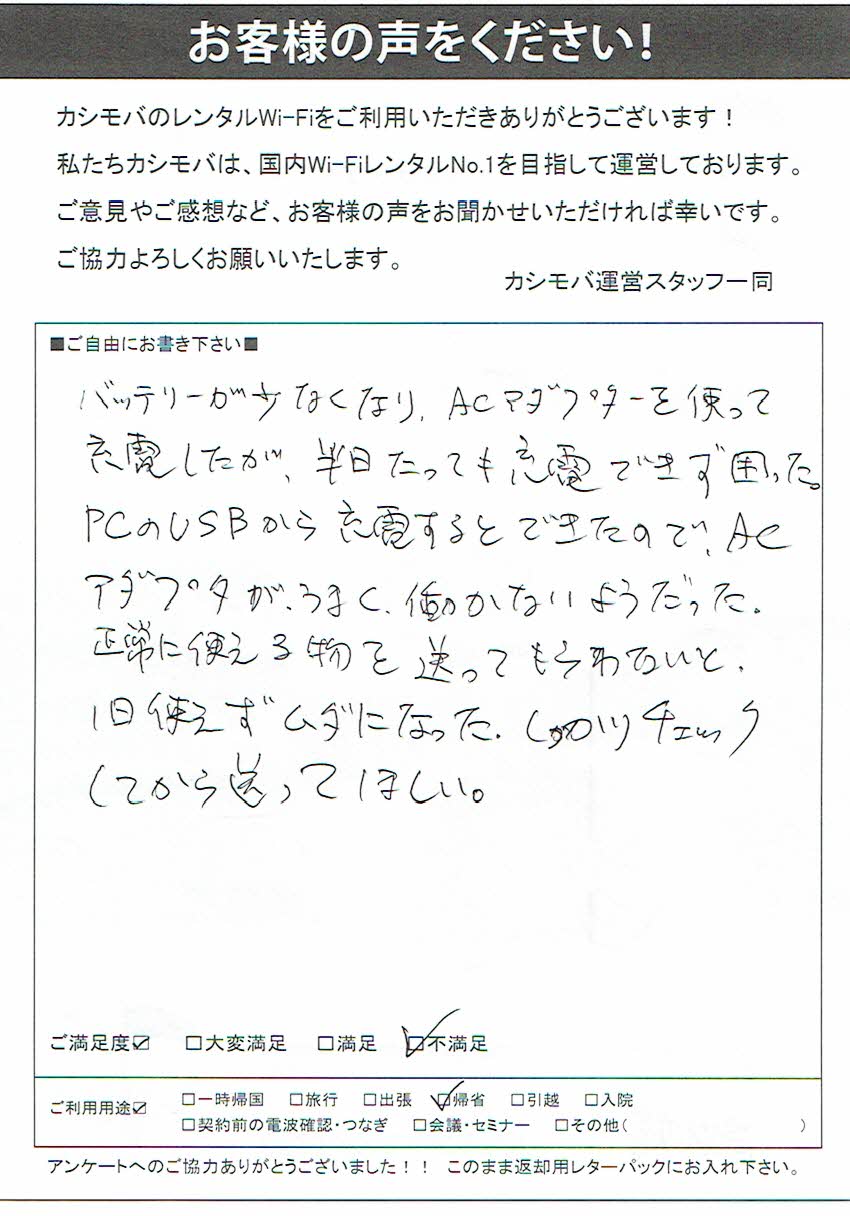 お客様の声をください!
カシモバのレンタルWi-Fiをご利用いただきありがとうございます！
私たちカシモバは、国内Wi-FiレンタルNo.1を目指して運営しております。
ご意見やご感想など、お客様の声をお聞かせいただければ幸いです。
ご協力よろしくお願いいたします。
カシモバ運営スタッフ一同
■ご自由にお書き下さい■
バッテリーが少なくなり、ACアダプターを使って
充電したが、半日たっても充電できず困った。
PCのUSBから充電するとできたので、AC
アダプタが、うまく、働かないようだった。
正常に使える物を送ってもらわないと、
1日使えずムダになった。しっかりチェック
してから送ってほしい。
ご満足度☑ □大変満足 □満足 ☑不満足
ご利用用途☑ □一時帰国 □旅行 □出張 ☑帰省 □引越 □入院
□契約前の電波確認・つなぎ □会議・セミナー □その他( )
アンケートへのご協力ありがとうございました！！ このまま返却用レターパックにお入れ下さい。